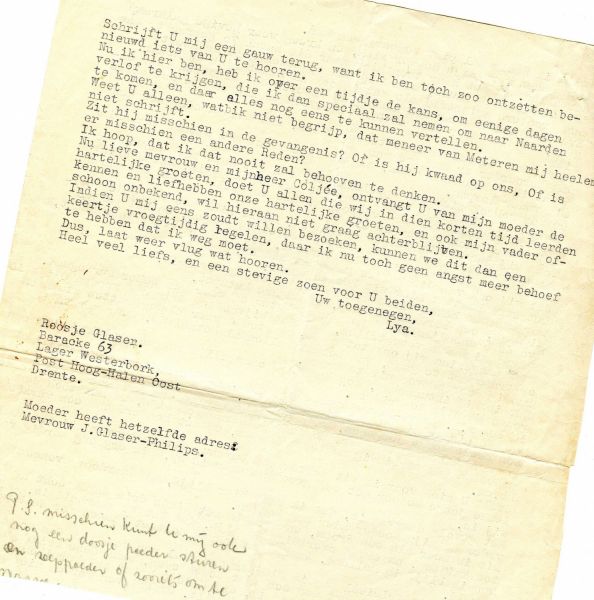 Schrijft U mij een gauw terug, want ik ben toch zoo ontzetten be-
nieuwd iets van U te hooren.
Nu ik hier ben, heb ik over een tijdje de kans, om eenige dagen
verlof te krijgen, die ik dan speciaal zal nemen om naar Naarden
te komen, en daar alles nog eens te kunnen vertellen.
Weet U alleen, watbik niet begrijp, dat meneer van Meteren mij heelem
niet schrijft.
Zit hij misschien in de gevangenis? Of is hij kwaad op ons, Of is
er misschien een andere Reden?
Ik hoop, dat ik dat nooit zal behoeven te denken.
Nu lieve mevrouw en mijnheer Coljée, ontvangt U van mijn moeder de
hartelijke groeten, doet U allen die wij in dien korten tijd leerden
kennen en liefhebben onze hartelijke groeten, en ook mijn vader of-
schoon onbekend, wil hieraan niet graag achterblijven.
Indien U mij eens zoudt willen bezoeken, kunnen we dit dan een
keertje vroegtijdig regelen, daar ik nu toch geen angst meer behoef
te hebben dat ik weg moet.
Dus, laat weer vlug wat hooren.
Heel veel liefs, en een stevige zoen voor U beiden,
Uw toegenegen,
Lya.
Roosje Glaser.
Baracke 63
Lager Westerbork,
Post Hoog-Halen Oost
Drente.
Moeder heeft hetzelfde adres:
Mevrouw J.Glaser-Philips.
P.S. misschien kunt U mij ook
nog een doosje poeder sturen
en zeeppoeder of zooiets om te